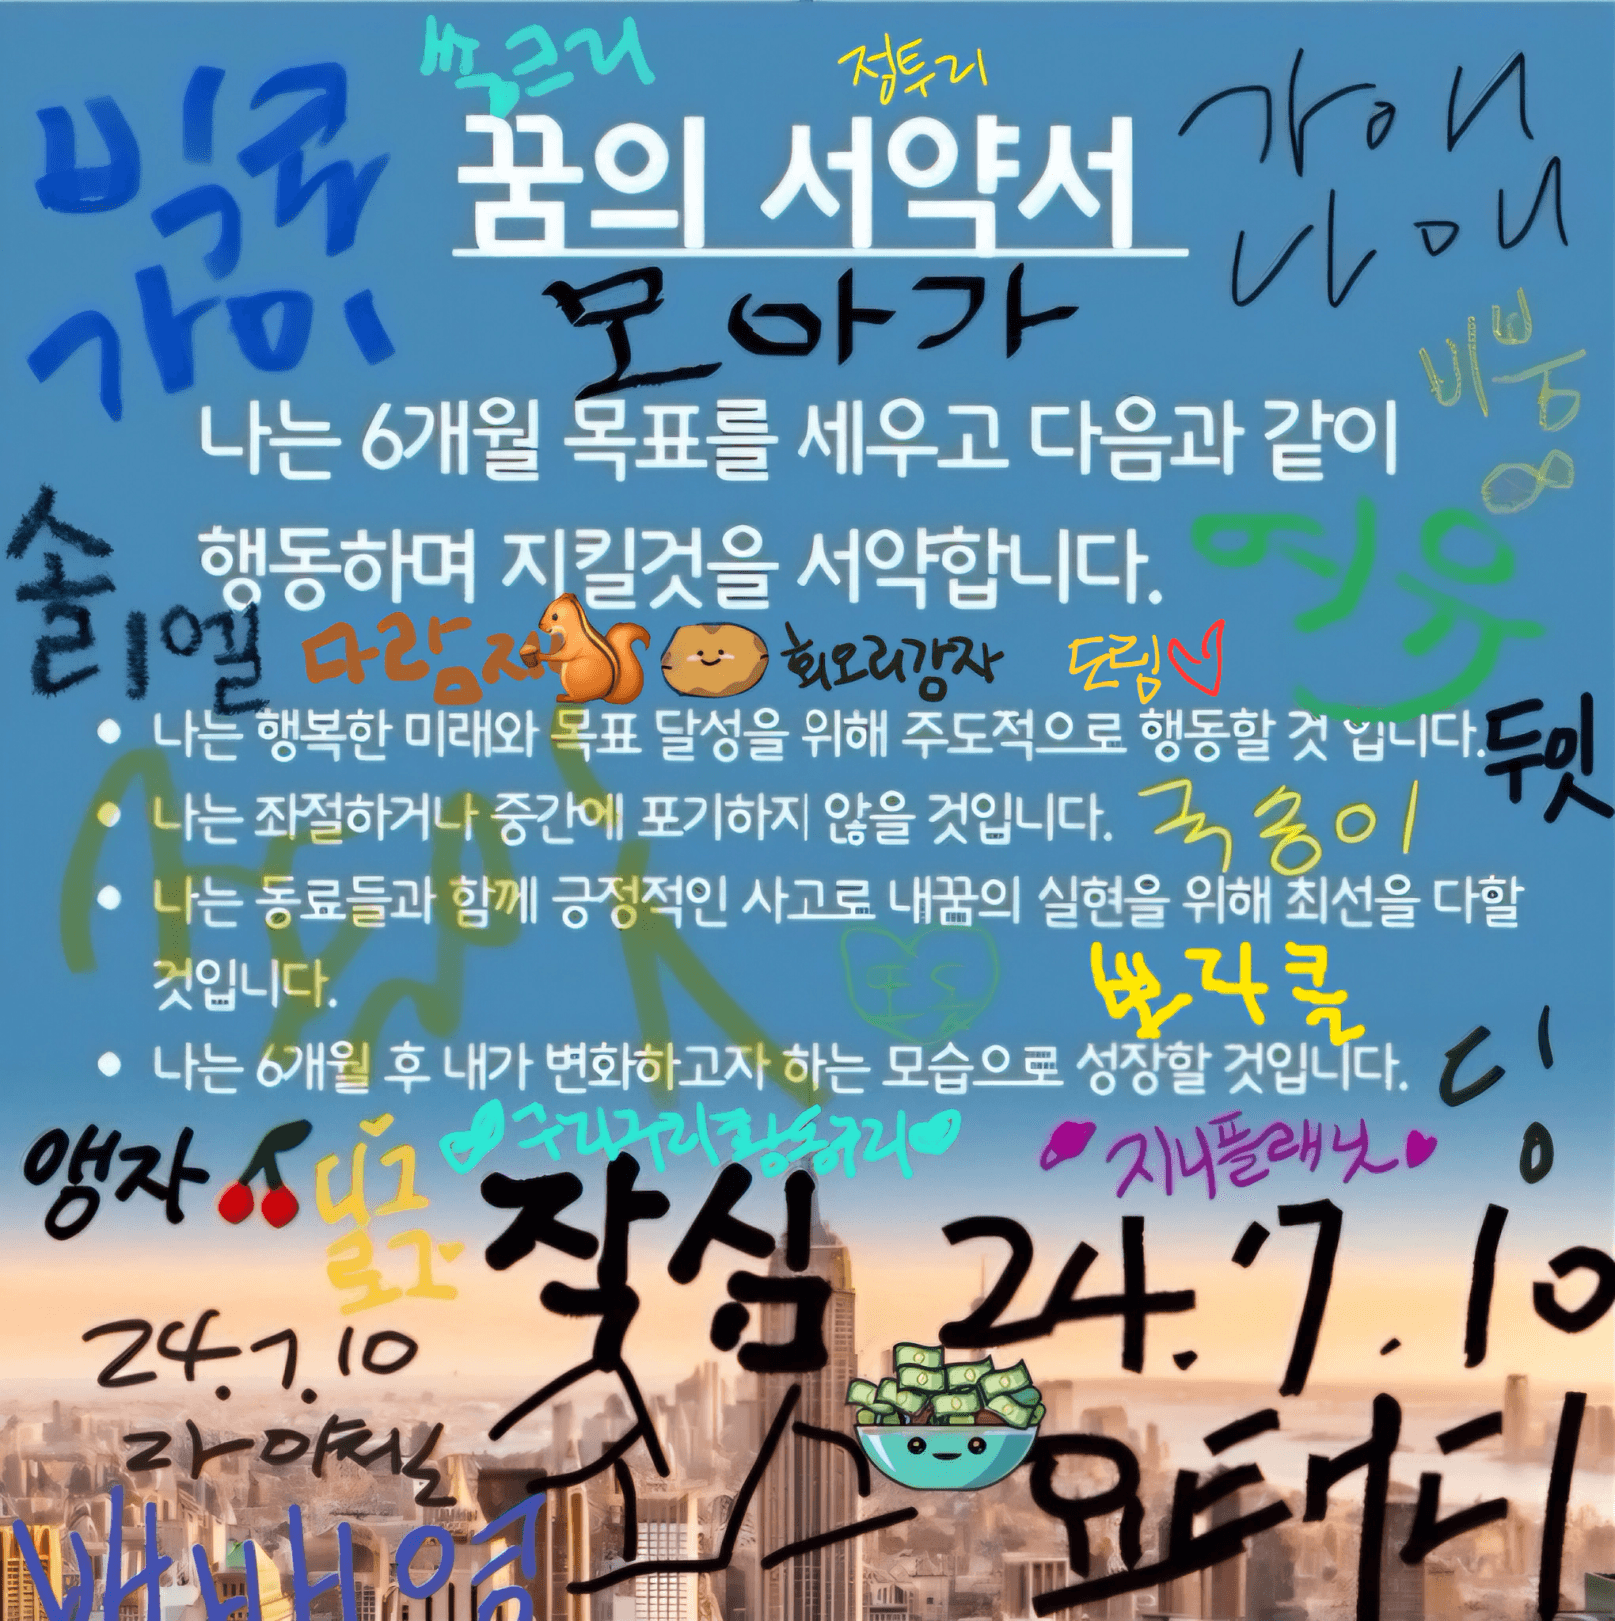 쏙크리
정투리
꿈의 서약서
빅큐
가이
간애
나애
모아가
비붐
나는 6개월 목표를 세우고 다음과 같이
행동하며 지킬것을 서약합니다.
연유
솔
리엘
다람쥐
회오리감자
드림
나는 행복한 미래와 목표 달성을 위해 주도적으로 행동할 것 입니다.
두밋
나는 좌절하거나 중간에 포기하지 않을 것입니다.
국송이
나는 동료들과 함께 긍정적인 사고로 내꿈의 실현을 위해 최선을 다할
것입니다.
뽀라클
나는 6개월 후 내가 변화하고자 하는 모습으로 성장할 것입니다.
딩
구리구리황동구리
지니플래닛
앵자
작심
24.7.10
24.7.10
라이첼
요태디